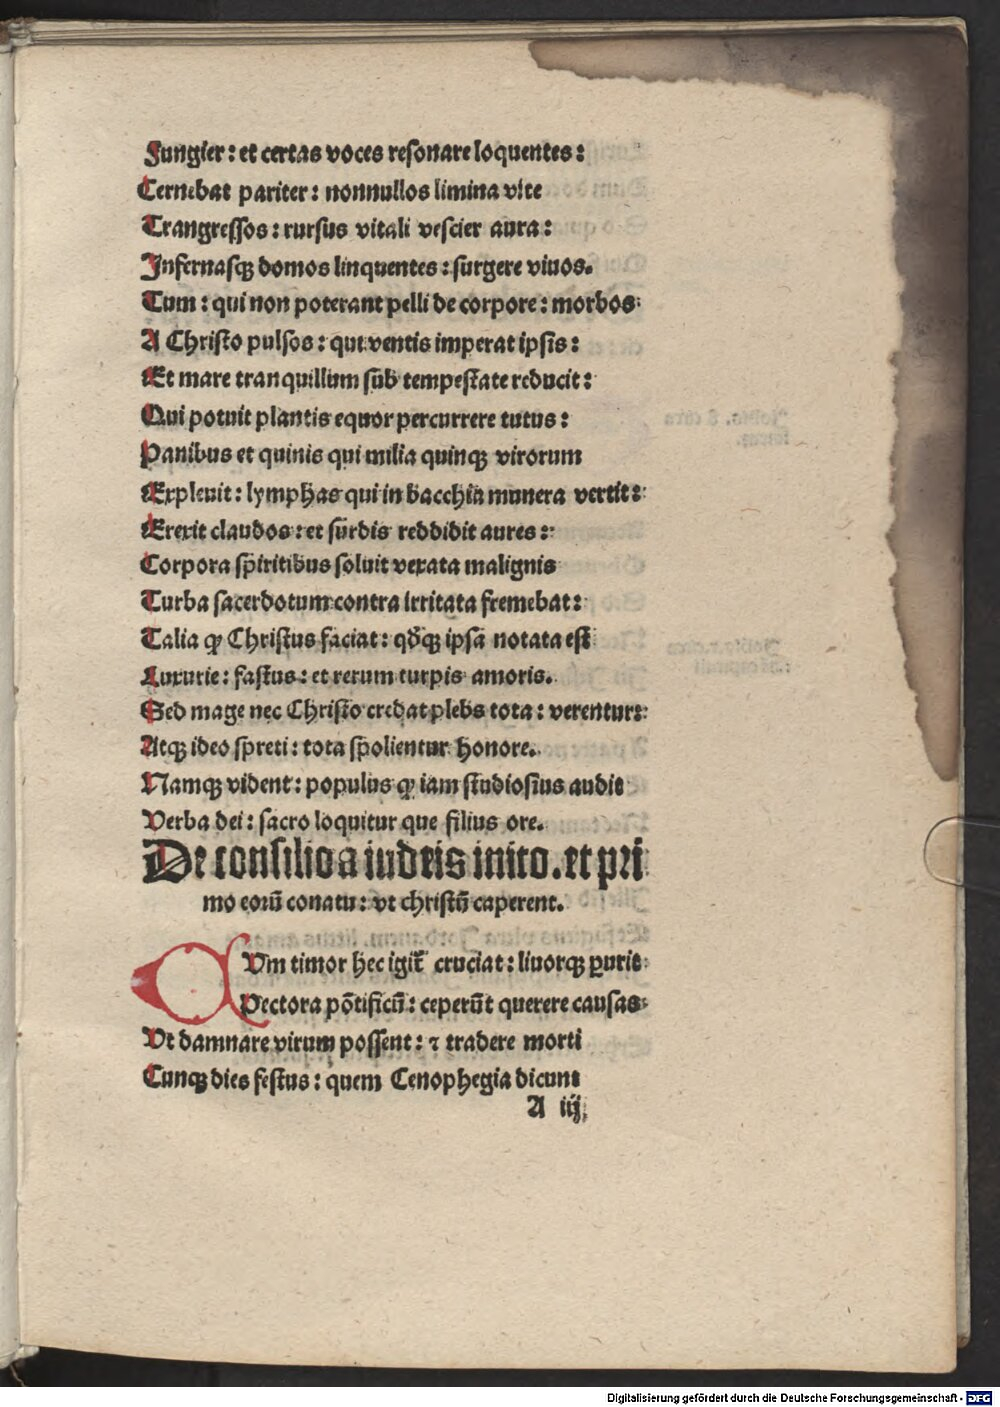 Jungier: et certas voces resonare loquentes:
Cernebat pariter: nonnullos limina vite
Trangressos: rursus vitali vescier aura:
Infernasqꝫ domos linquentes: surgere viuos.
Tum: qui non poterant pelli de corpore: morbos:
A Christo pulsos: qui ventis imperat ipsis:
Et mare tranquillum sub tempestate reducit:
Qui potuit plantis equor percurrere tutus:
Panibus et quinis qui milia quinqꝫ virorum
Expleuit: lymphas qui in bacchia munera vertit:
Erexit claudos: et surdis reddidit aures:
Corpora spiritibus soluit vexata malignis
Turba sacerdotum contra irritata fremebat:
Talia ꝙ Christus faciat: qđqꝫ ipsa notata est
Luxurie: fastus: et rerum turpis amoris.
Sed mage nec Christo credat plebs tota: verentur:
Atqꝫ ideo spreti: tota spolientur honore.
Namqꝫ vident: populus ꝙ iam studiosius audit
Verba dei: sacro loquitur que filius ore.
De consilio a iudeis inito. et pri
mo eorū conatu: vt christū caperent.
CVm timor hec igit̄ cruciat: liuorqꝫ ꝑurit
Pectora pōtificū: ceperūt querere causas:
Vt damnare virum possent: ⁊ tradere morti
Cunqꝫ dies festus: quem Cenophegia dicunt
A iij
Digitalisierung gefördert durch die Deutsche Forschungsgemeinschaft - DFG